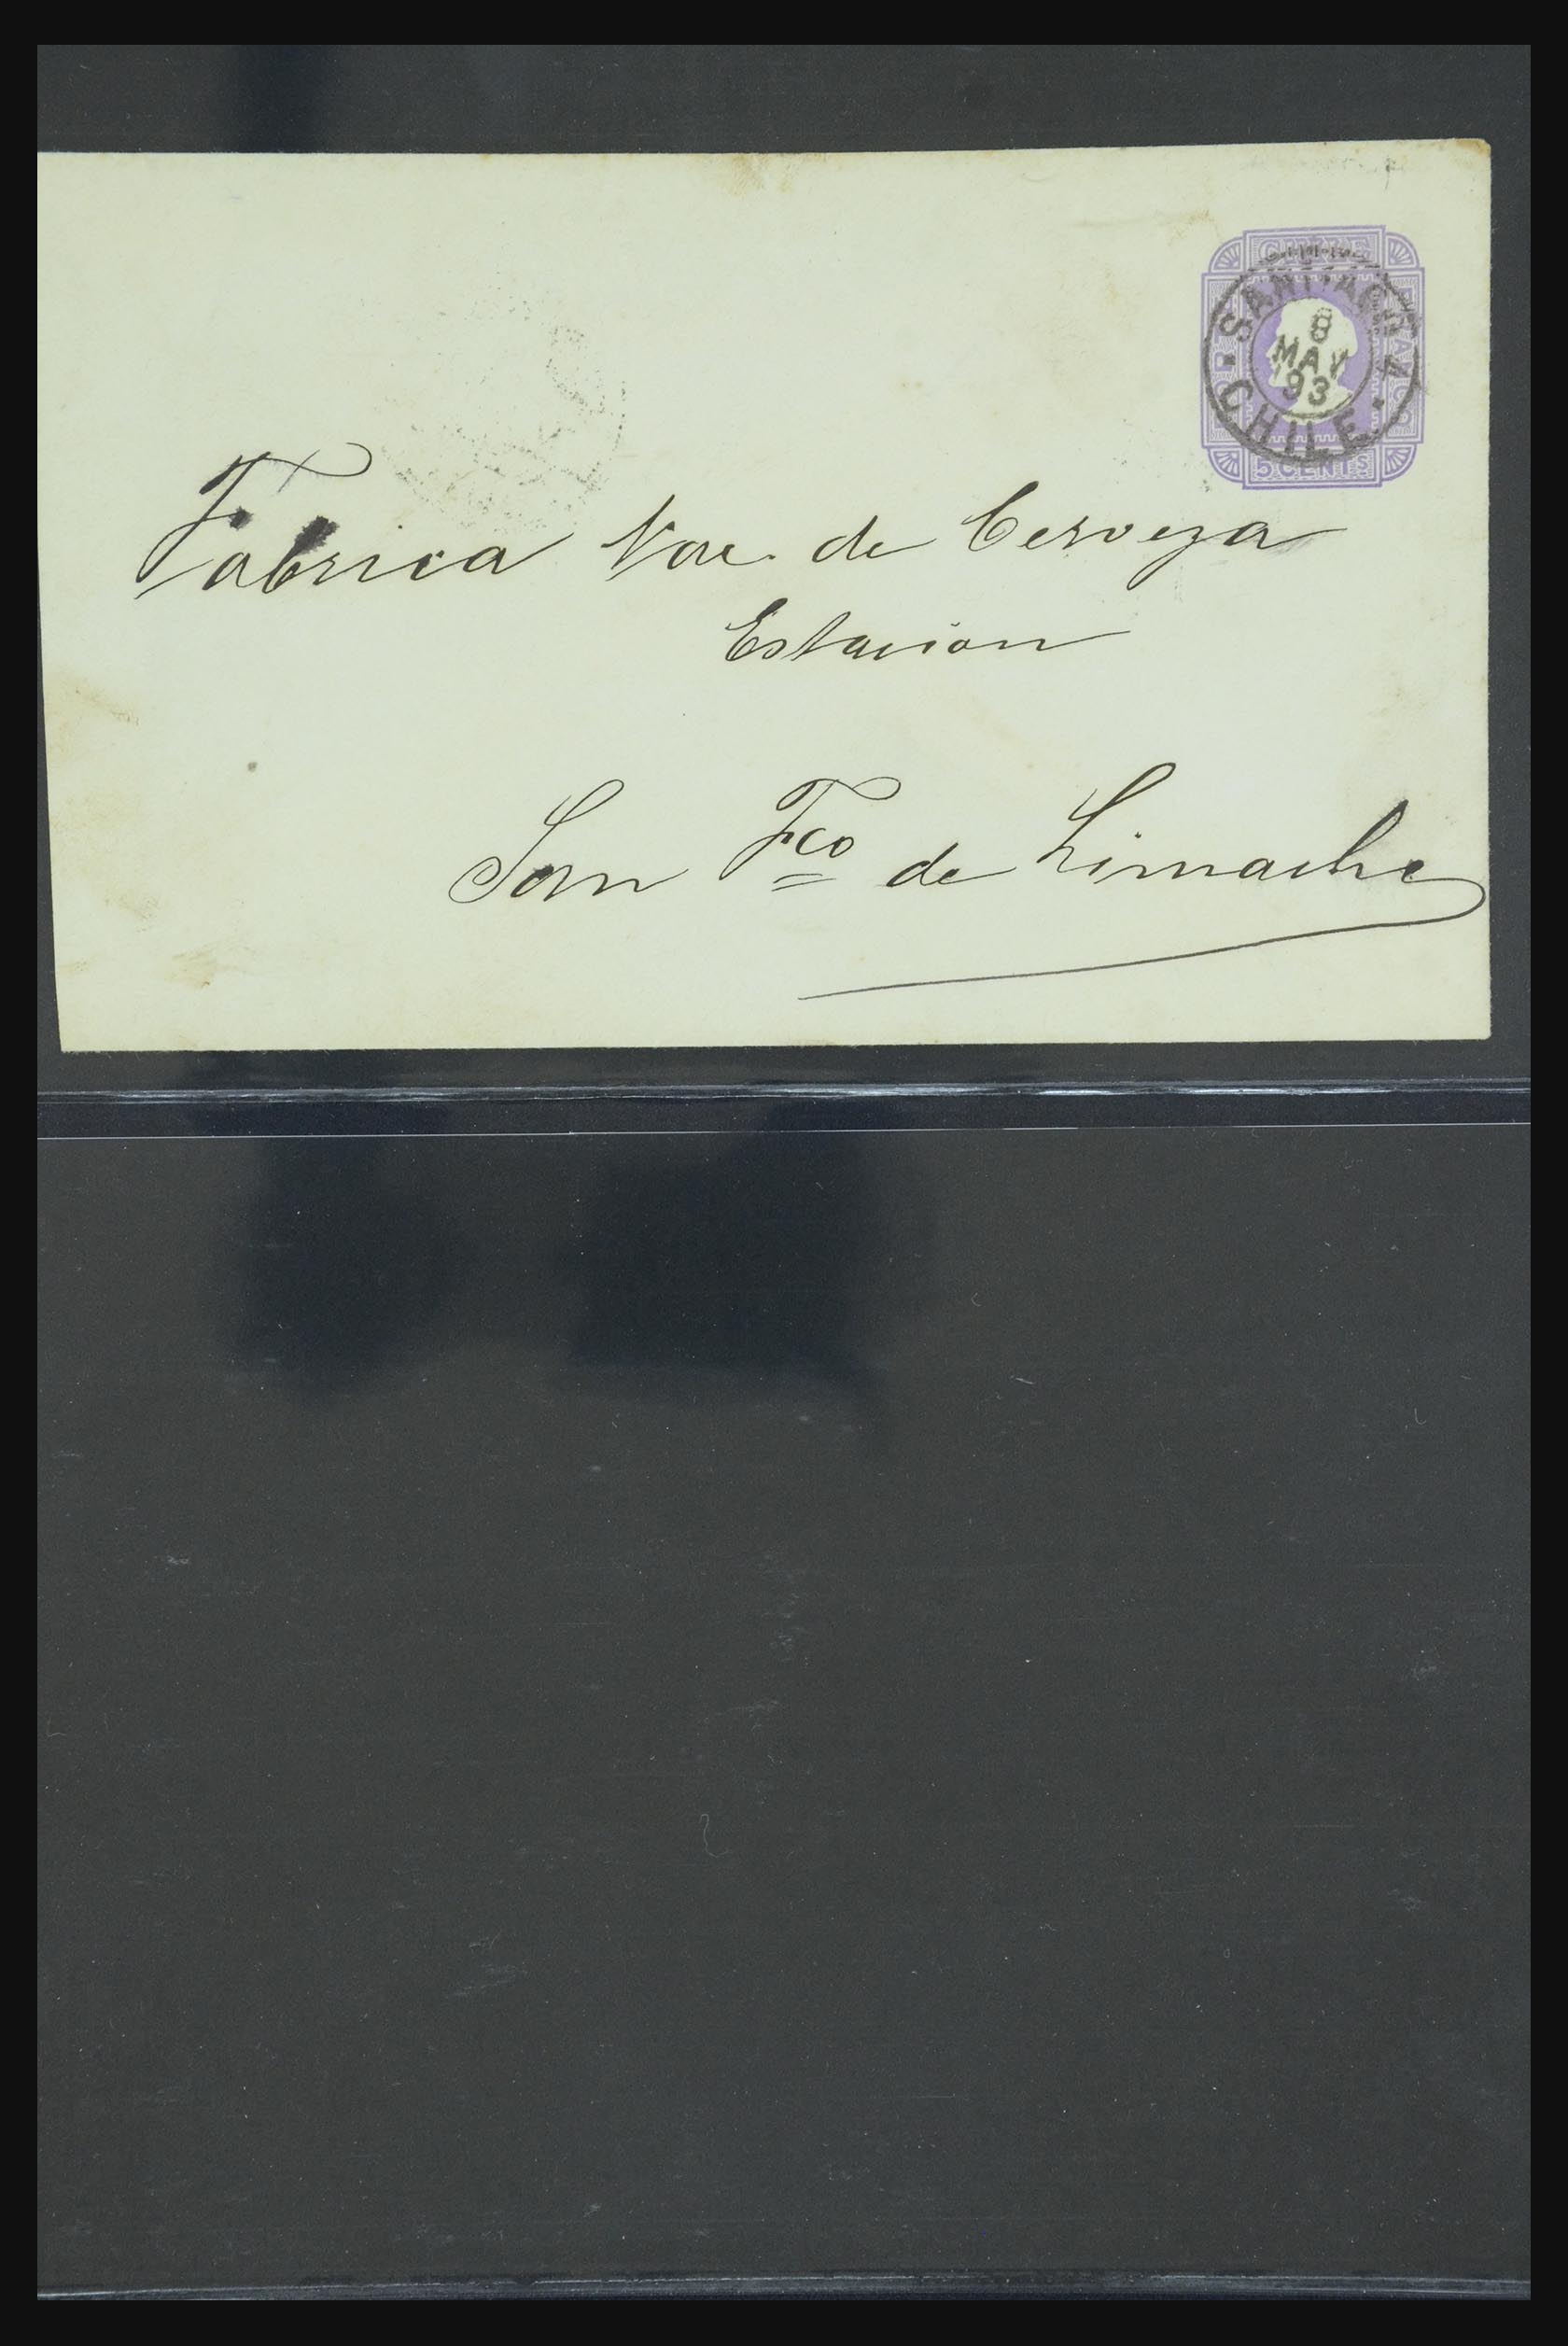 CHILE
SANTIAGO
8
MAY
93
CHILE
5 CENTS
Fabrica Nac. de Cerveza
Estacion
San Fco de Limache